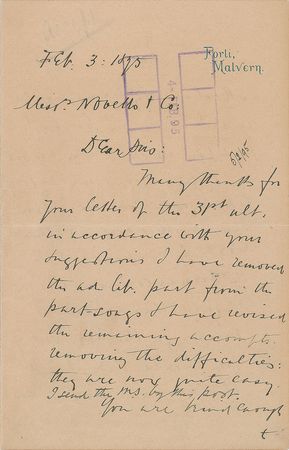 Forli,
Malvern.
Feb. 3: 1895
Messrs Novello & Co:
Dear Sirs:
Many thanks for
your letter of the 31st ult.
in accordance with your
suggestions I have removed
the ad lib. part from the
part-songs & have revised
the remaining accompts.
removing the difficulties:
they are now quite easy.
I send the MS. by this post.
You are kind enough
t